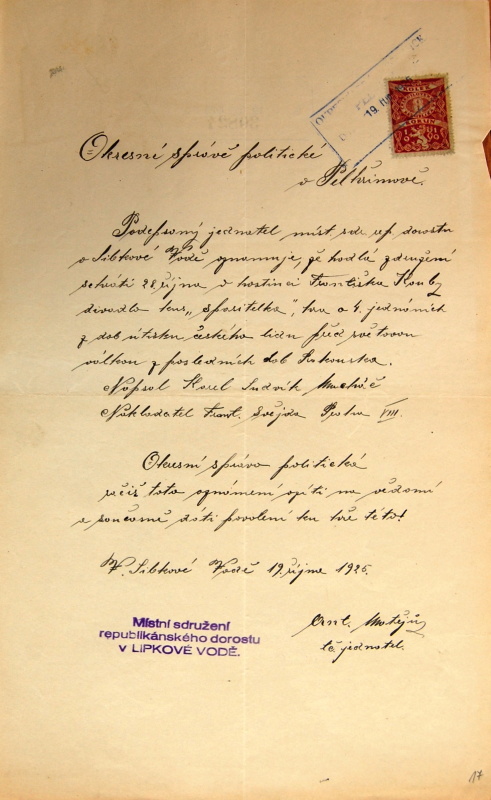 19. ŘÍJ.
KOLEK
KORUN
Okresní správě politické
v Pelhřimově.
Podepsaný jednatel míst. sdr. rep. dorostu
v Libkové Vodě oznamuje, že hodlá združení
sehráti 28. října v hostinci Františka Kouby
divadlo kus „spasitelka", hra o 4. jednáních
z dob útisku českého lidu před světovou
válkou z posledních dob Rakouska.
Napsal Karel Ludvík Macháč
Nakladatel Frant. Švejda Praha VIII.
Okresní správa politická
račiž toto oznámení vzíti na vědomí
a současně dáti povolení ku hře této!
V Libkové Vodě 19. října 1925.
Místní sdružení
republikánského dorostu
v LIPKOVÉ VODĚ.
Ant. Matějů
tč. jednatel.
17